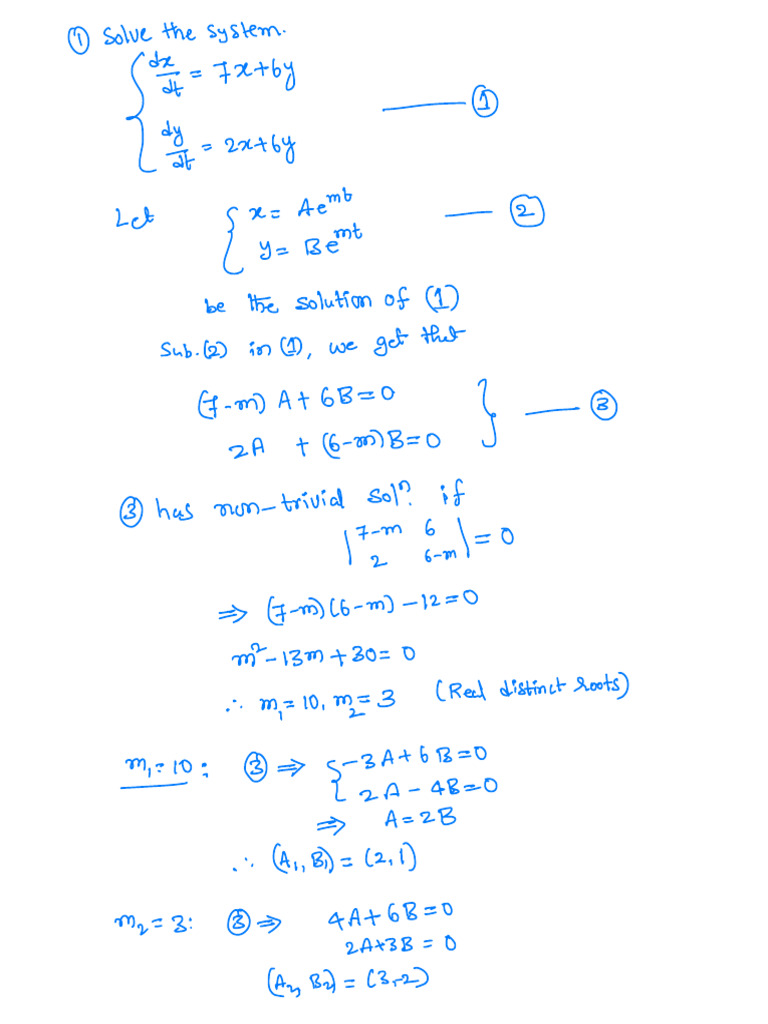 ① Solve the system.
dx/dt = 7x+6y
——— ①
dy/dt = 2x+6y
Let { x = Ae^mt —— ②
y = Be^mt
be the solution of (1)
Sub.(2) in (1), we get that
(7-m) A + 6B = 0
2A + (6-m)B = 0 } —— ③
③ has non-trivial solⁿ. if
|7-m 6|
|2 6-m| = 0
⇒ (7-m)(6-m) - 12 = 0
m² - 13m + 30 = 0
∴ m₁ = 10, m₂ = 3 (Real distinct roots)
m₁ = 10: ③ ⇒ { -3A + 6B = 0
2A - 4B = 0
⇒ A = 2B
∴ (A₁, B₁) = (2, 1)
m₂ = 3: ③ ⇒ 4A + 6B = 0
2A + 3B = 0
(A₂, B₂) = (3, -2)